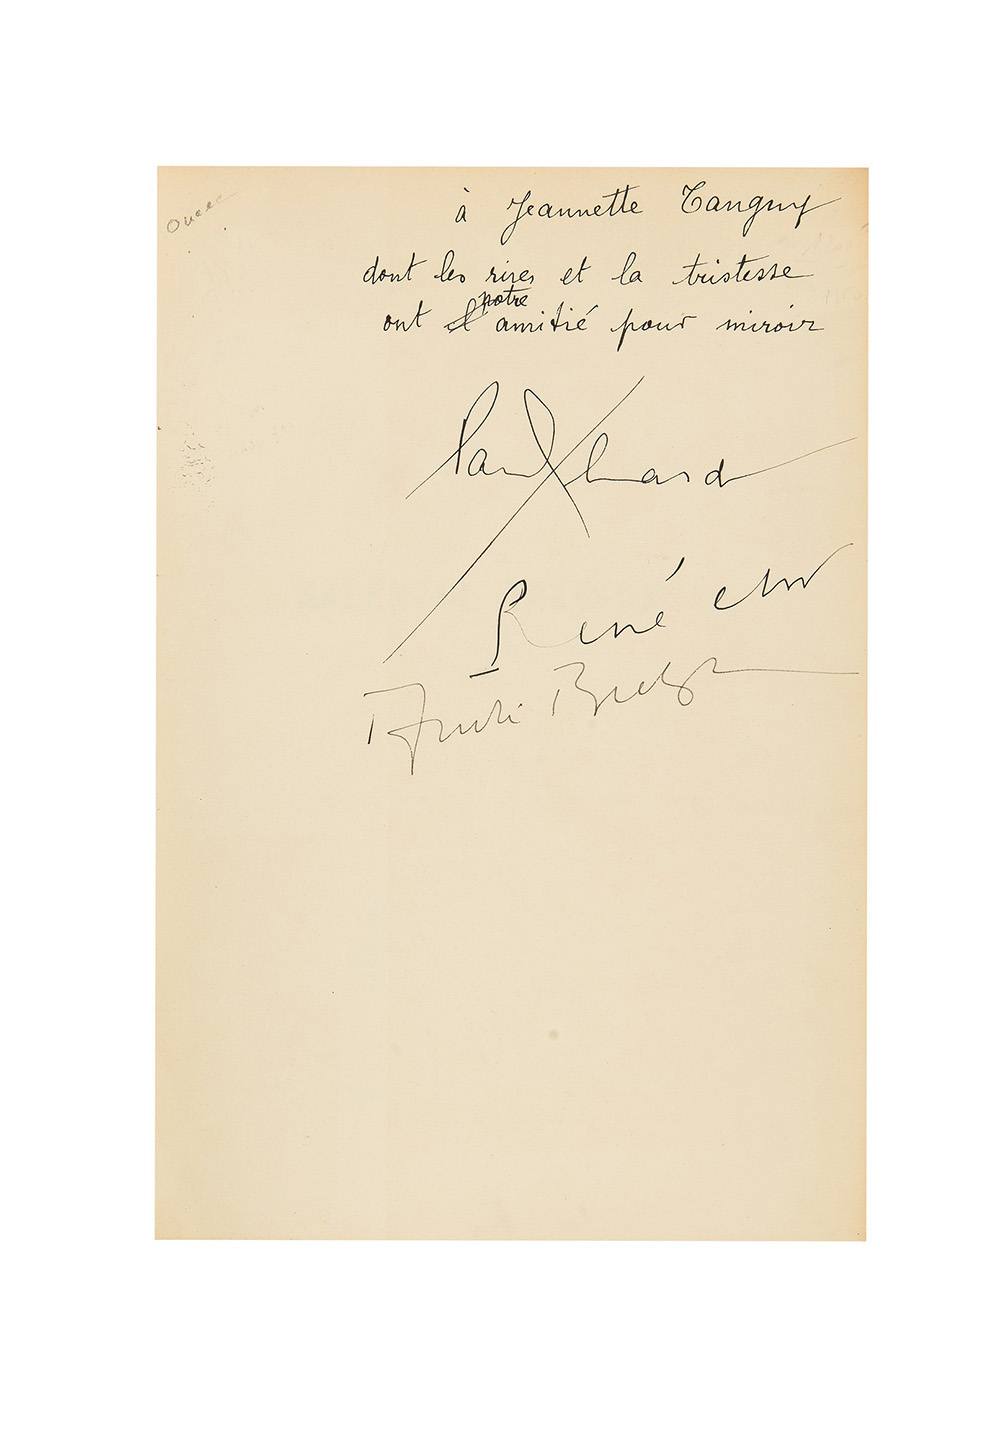 à Jeannette Tanguy
dont les rires et la tristesse
notre
ont l'amitié pour miroir
Paul Eluard
René Char
André Breton